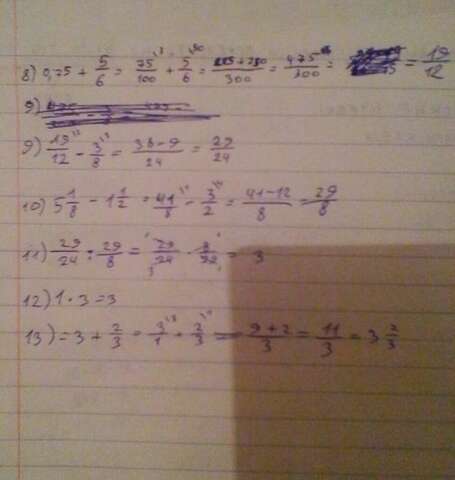 8) 0,75 + 5/6 = 75/100 + 5/6 = 225 + 250/300 = 475/300 = = 19/12
9)
9) 19/12 - 3/8 = 38-9/24 = 29/24
10) 5 1/8 - 1 1/2 = 41/8 - 3/2 = 41-12/8 = 29/8
11) 29/24 : 29/8 = 29/24 · 8/29 = 3
12) 1 · 3 = 3
13) = 3 + 2/3 = 3/1 + 2/3 = 9+2/3 = 11/3 = 3 2/3